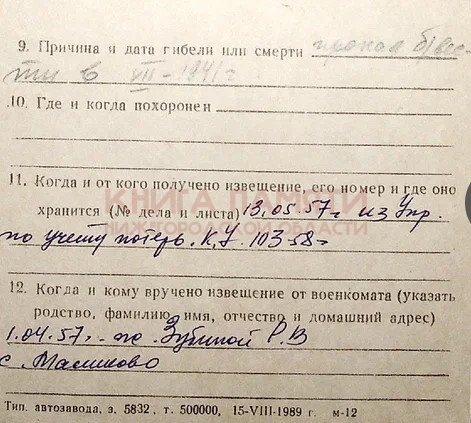 9. Причина и дата гибели или смерти пропал б/вес-
ти в VII-1941г
10. Где и когда похоронен
11. Когда и от кого получено извещение, его номер и где оно
хранится (№ дела и листа) 13.05.57г из Упр.
по учету потерь. К.У. 103-58г
КНИГА ПАМЯТИ
НИЖЕГОРОДСКОЙ ОБЛАСТИ
12. Когда и кому вручено извещение от военкомата (указать
родство, фамилию, имя, отчество и домашний адрес)
1.04.57.-по Зубиной Р.В
с. Маликово
Тип. автозавода, з. 5832, т. 500000, 15-VIII-1989 г. м-12